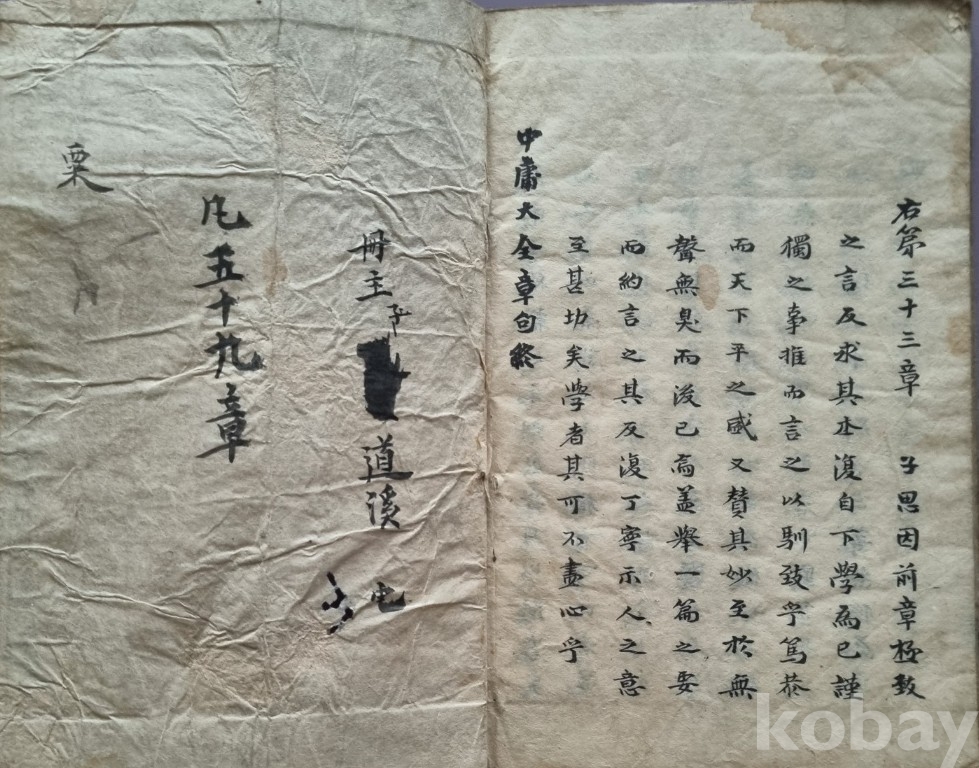 右第三十三章 子思因前章極致
之言反求其本復自下學為已謹
獨之事推而言之以馴致乎篤恭
而天下平之盛又贊其妙至於無
聲無臭而後已焉盖舉一篇之要
而約言之其反復丁寧示人之意
至甚切矣學者其可不盡心乎
中庸大全章句終
冊主 道溪
凡五十九章
栗
kobay